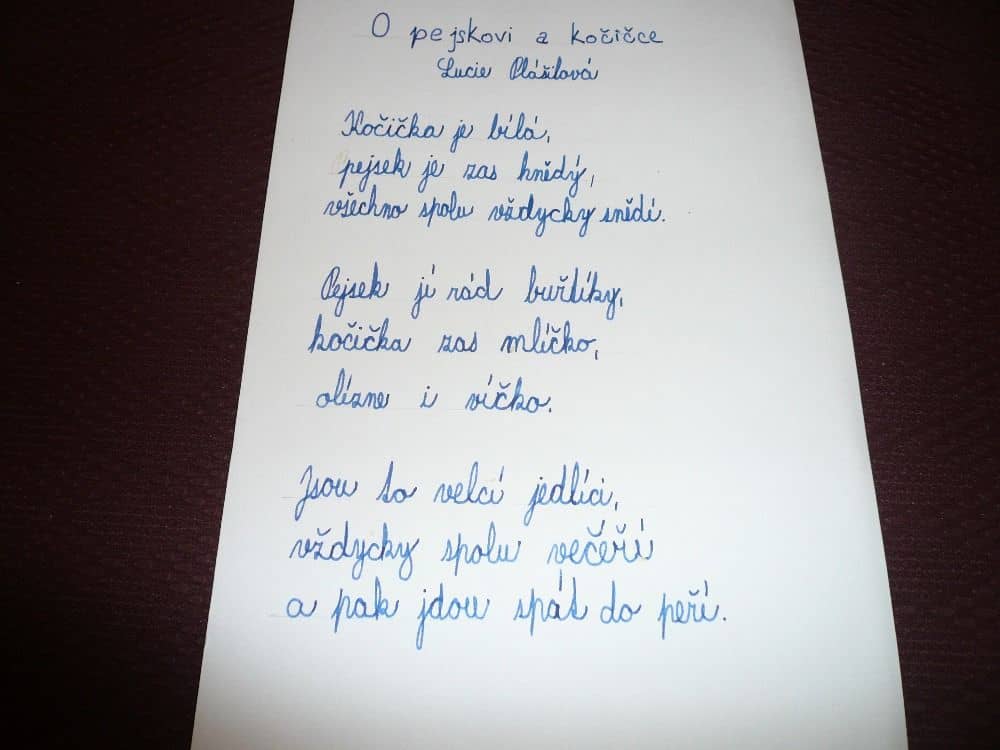 O pejskovi a kočičce
Lucie Plášilová
Kočička je bílá,
pejsek je zas hnědý,
všechno spolu vždycky snědí.
Pejsek jí rád buřtíky,
kočička zas mlíčko,
olízne i víčko.
Jsou to velcí jedlíci,
vždycky spolu večeří
a pak jdou spát do peří.